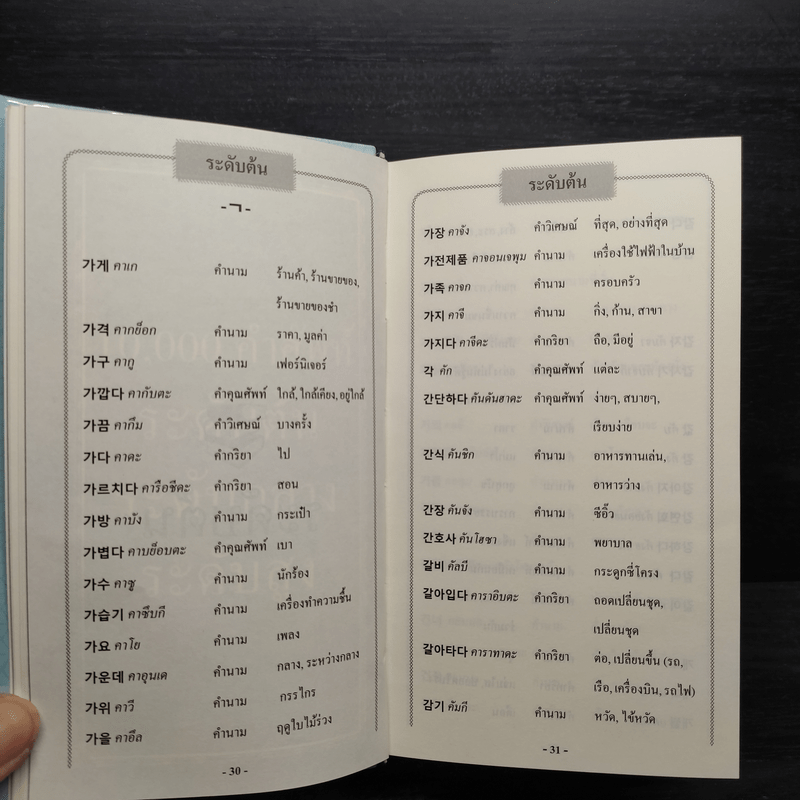 ระดับต้น
-ㄱ-
가게 คาเก คำนาม ร้านค้า, ร้านขายของ,
ร้านขายของชำ
가격 คากย็อก คำนาม ราคา, มูลค่า
가구 คากู คำนาม เฟอร์นิเจอร์
가깝다 คากับตะ คำคุณศัพท์ ใกล้, ใกล้เคียง, อยู่ใกล้
가끔 คากึม คำวิเศษณ์ บางครั้ง
가다 คาดะ คำกริยา ไป
가르치다 คารือชีดะ คำกริยา สอน
가방 คาบัง คำนาม กระเป๋า
가볍다 คาบย็อบตะ คำคุณศัพท์ เบา
가수 คาซู คำนาม นักร้อง
가습기 คาซึบกี คำนาม เครื่องทำความชื้น
가요 คาโย คำนาม เพลง
가운데 คาอุนเด คำนาม กลาง, ระหว่างกลาง
가위 คาวี คำนาม กรรไกร
가을 คาอึล คำนาม ฤดูใบไม้ร่วง
- 30 -
ระดับต้น
가장 คาจัง คำวิเศษณ์ ที่สุด, อย่างที่สุด
가전제품 คาจอนเจพุม คำนาม เครื่องใช้ไฟฟ้าในบ้าน
가족 คาจก คำนาม ครอบครัว
가지 คาจี คำนาม กิ่ง, ก้าน, สาขา
가지다 คาจีดะ คำกริยา ถือ, มีอยู่
각 คัก คำคุณศัพท์ แต่ละ
간단하다 คันดันฮาดะ คำคุณศัพท์ ง่ายๆ, สบายๆ,
เรียบง่าย
간식 คันชิก คำนาม อาหารทานเล่น,
อาหารว่าง
간장 คันจัง คำนาม ซีอิ๊ว
간호사 คันโฮซา คำนาม พยาบาล
갈비 คัลบี คำนาม กระดูกซี่โครง
갈아입다 คาราอิบตะ คำกริยา ถอดเปลี่ยนชุด,
เปลี่ยนชุด
갈아타다 คาราทาดะ คำกริยา ต่อ, เปลี่ยนขึ้น (รถ,
เรือ, เครื่องบิน, รถไฟ)
감기 คัมกี คำนาม หวัด, ไข้หวัด
- 31 -